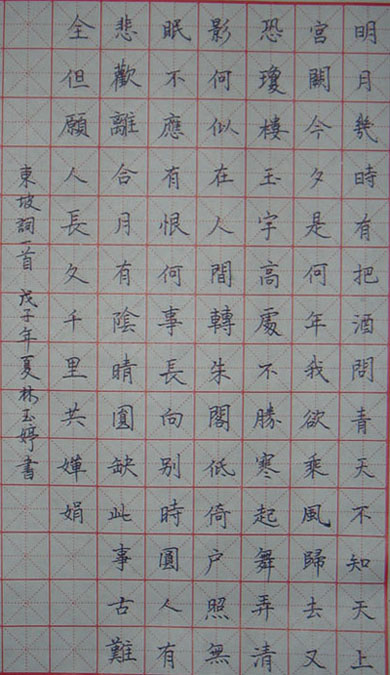 明月幾時有把酒問青天不知天上
宮闕今夕是何年我欲乘風歸去又
恐瓊樓玉宇高處不勝寒起舞弄清
影何似在人間轉朱閣低倚户照無
眠不應有恨何事長向別時圓人有
悲歡離合月有陰晴圓缺此事古難
全但願人長久千里共嬋娟
東坡詞一首 戊子年夏林玉婷書